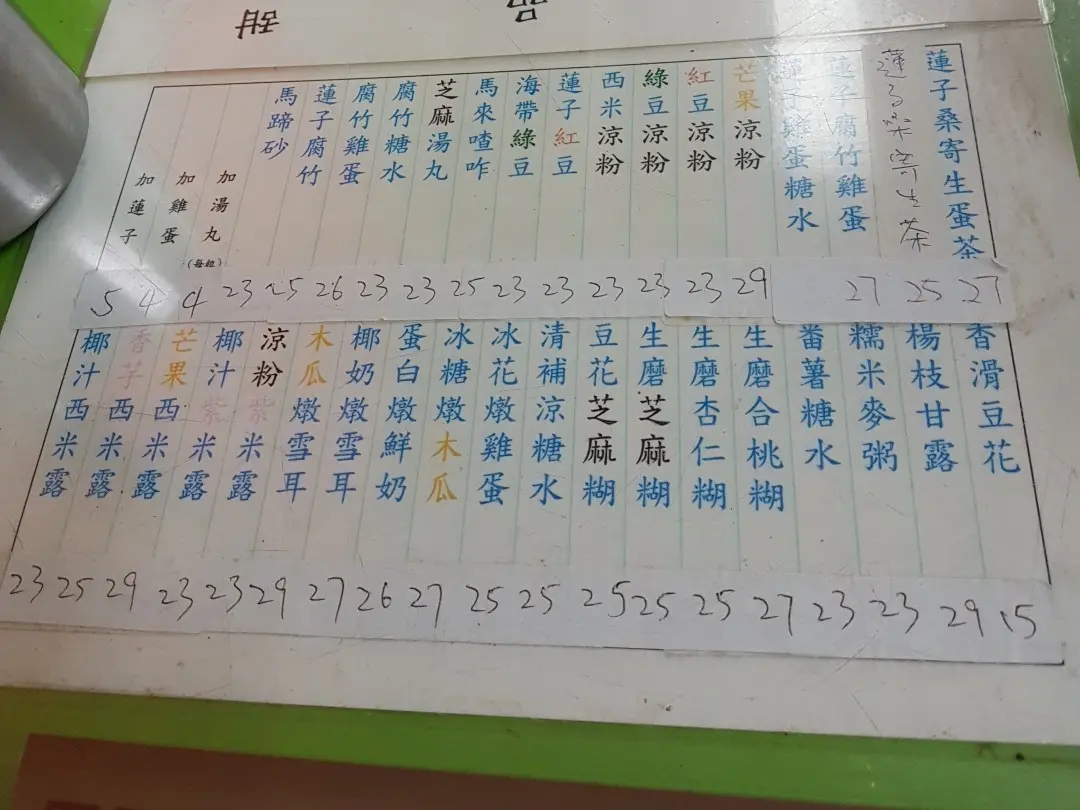 甜品
蓮子桑寄生蛋茶
蓮子桑寄生茶
蓮子腐竹雞蛋
蓮子雞蛋糖水
芒果涼粉
紅豆涼粉
綠豆涼粉
西米涼粉
蓮子紅豆
海帶綠豆
馬來喳咋
芝麻湯丸
腐竹糖水
腐竹雞蛋
蓮子腐竹
馬蹄砂
加湯丸(每粒)
加雞蛋
加蓮子
5 4 4 23 25 26 23 23 25 23 23 23 23 23 29 27 25 27
香滑豆花
楊枝甘露
糯米麥粥
番薯糖水
生磨合桃糊
生磨杏仁糊
生磨芝麻糊
豆花芝麻糊
清補涼糖水
冰花燉雞蛋
冰糖燉木瓜
蛋白燉鮮奶
椰奶燉雪耳
木瓜燉雪耳
涼粉紫米露
椰汁紫米露
芒果西米露
香芋西米露
椰汁西米露
23 25 29 23 23 29 27 26 27 25 25 25 25 25 27 23 23 29 15